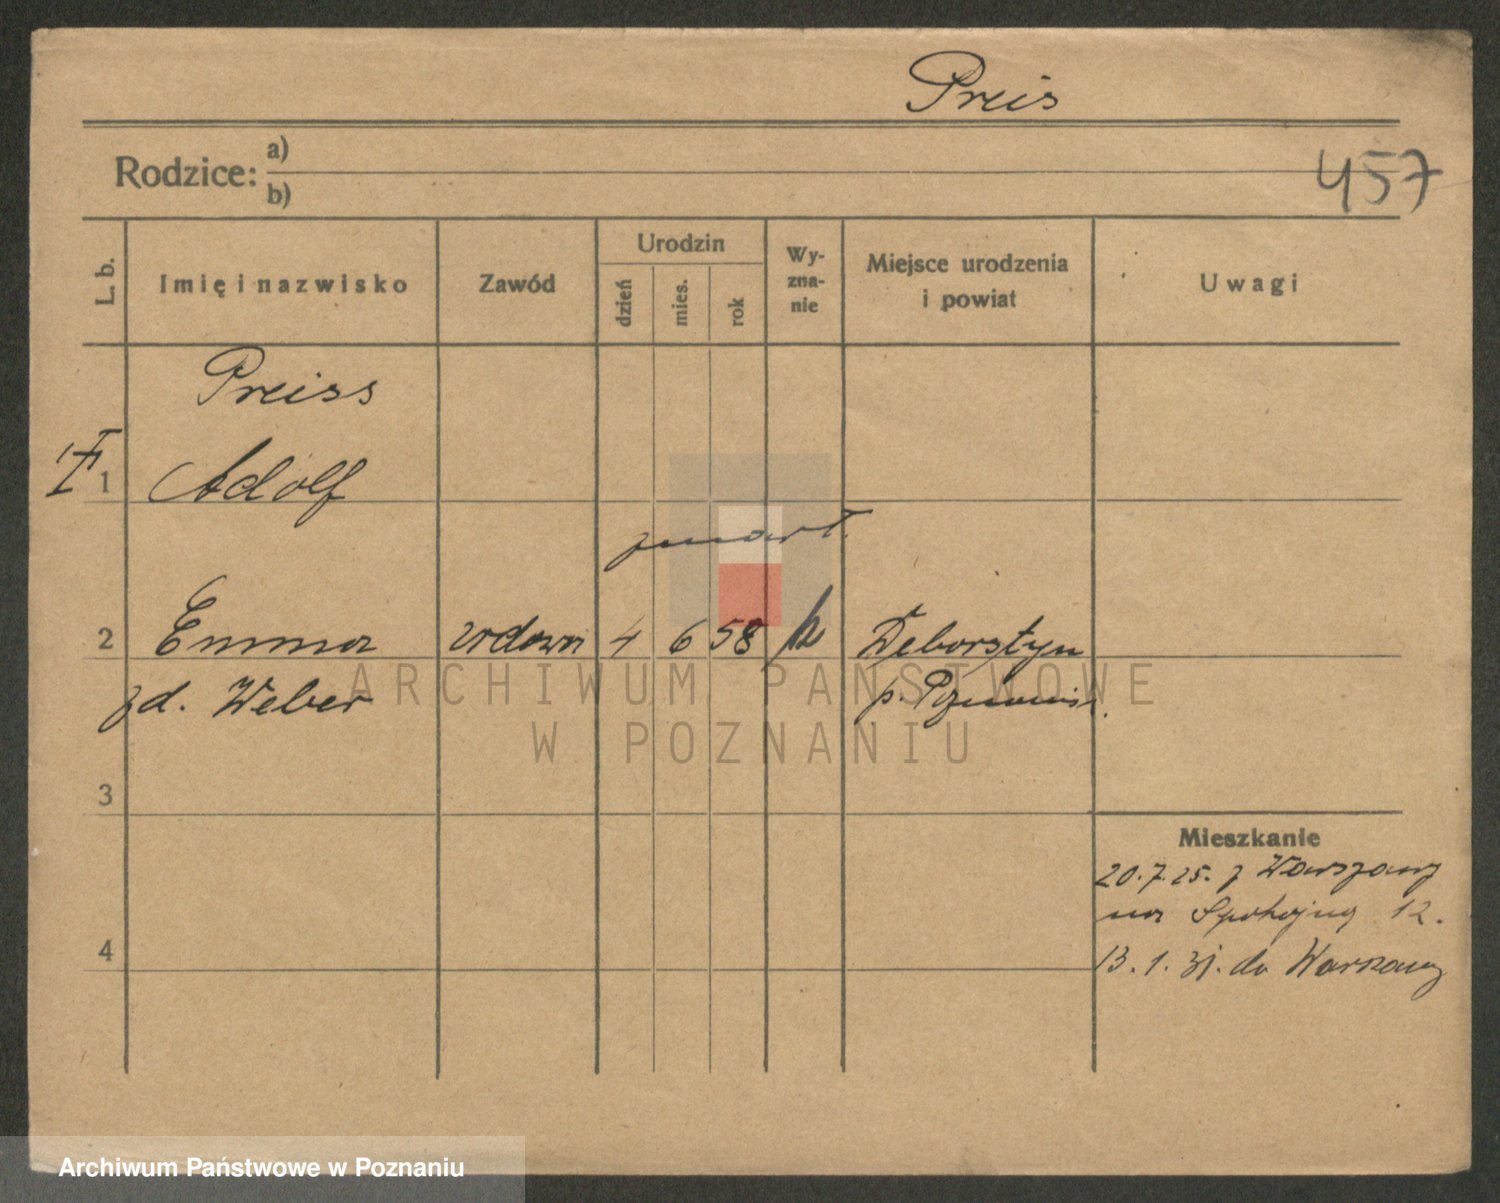 Preis
Rodzice: a)
b)
457
L. b.
Imię i nazwisko
Zawód
Urodzin
dzień
mies.
rok
Wy-
zna-
nie
Miejsce urodzenia
i powiat
Uwagi
Preiss
1 Adolf
zmarł.
2 Emma wdowa 4 6 58
zd. Weber
p.
3
Mieszkanie
20.7.25. z Warszawy
na Spokojną 12.
4
13.1.31. do Warszawy
ARCHIWUM PAŃSTWOWE
W POZNANIU
Archiwum Państwowe w Poznaniu